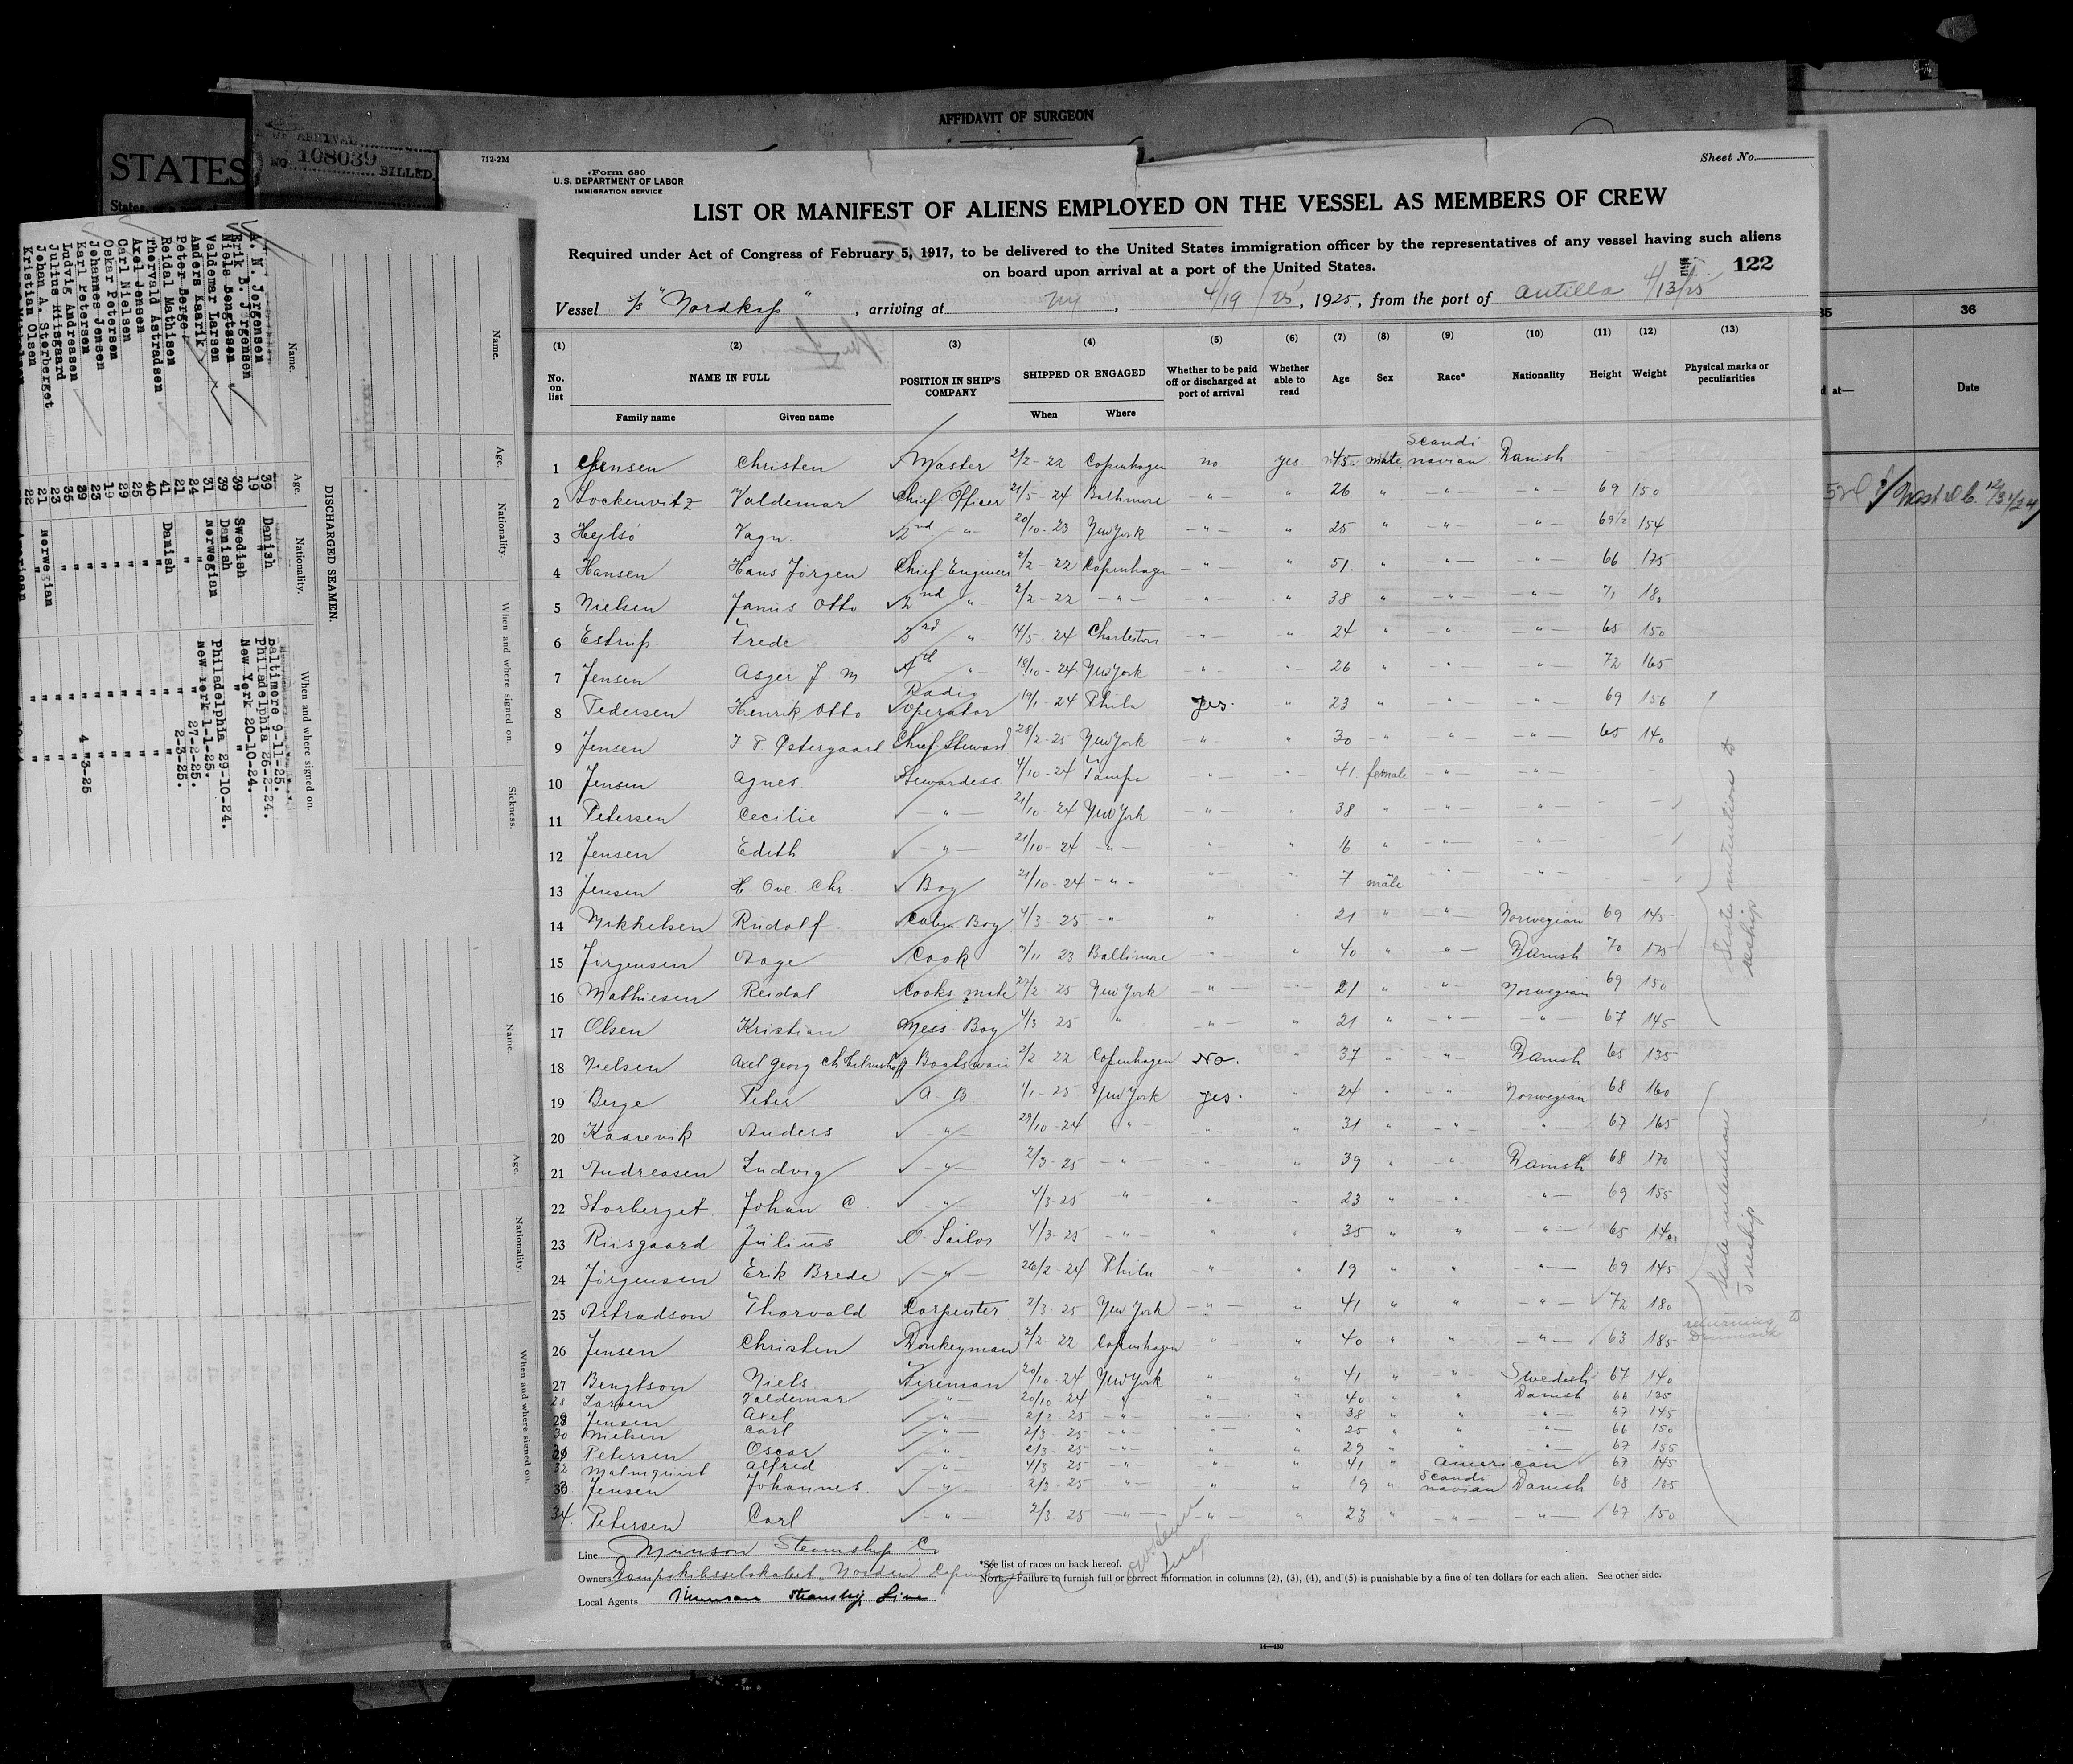 AFFIDAVIT OF SURGEON
OF ARRIVAL
NO. 108039 BILLED
STATES
712-2M
Sheet No.
Form 680
U.S. DEPARTMENT OF LABOR
IMMIGRATION SERVICE
LIST OR MANIFEST OF ALIENS EMPLOYED ON THE VESSEL AS MEMBERS OF CREW
Required under Act of Congress of February 5, 1917, to be delivered to the United States immigration officer by the representatives of any vessel having such aliens
on board upon arrival at a port of the United States.
122
Vessel s/s "Nordkap", arriving at NY, 4/19/25, 1925, from the port of Antilla 4/13/25
(1) (2) (3) (4) (5) (6) (7) (8) (9) (10) (11) (12) (13)
No. on list NAME IN FULL POSITION IN SHIP'S COMPANY SHIPPED OR ENGAGED Whether to be paid off or discharged at port of arrival Whether able to read Age Sex Race* Nationality Height Weight Physical marks or peculiarities
Family name Given name When Where
1 Jensen Christen Master 2/2-22 Copenhagen no yes 45 male Scandinavian Danish
2 Lockenvitz Valdemar Chief Officer 21/5-24 Baltimore -"- " 26 " -"- -"- 69 150
3 Hejlsö Vagn 2nd " 20/10-23 New York -"- " 25 " -"- -"- 69 1/2 154
4 Hansen Hans Jörgen Chief Engineer 2/2-22 Copenhagen -"- " 51 " -"- -"- 66 175
5 Nielsen Janus Otto 2nd " 2/2-22 -"- -"- " 38 " -"- -"- 71 180
6 Estrup Frede 3rd " 14/5-24 Charleston -"- " 24 " -"- -"- 65 150
7 Jensen Asger J M 4th " 18/10-24 New York " " 26 " " -"- 72 165
8 Pedersen Henrik Otto Radio Operator 19/1-24 Phila yes. " 23 " " -"- 69 156
9 Jensen J P Östergaard Chief Steward 28/2-25 New York " " 30 " -"- -"- 65 140
10 Jensen Agnes Stewardess 4/10-24 Tampa " " 41 female -"- -"-
11 Petersen Cecilie -"- 21/10-24 New York -"- " 38 " -"- -"-
12 Jensen Edith -"- 21/10-24 -"- " " 16 " -"- -"-
13 Jensen H Ove Chr. Boy 21/10-24 -"- " 7 male " -"-
14 Mikkelsen Rudolf Cabin Boy 4/3-25 -"- " " 21 " " Norwegian 69 145
15 Jörgensen Aage Cook 9/11 23 Baltimore " " 40 " " Danish 70 175
16 Mathiesen Reidal Cooks mate 27/2-25 New York " " 21 " " Norwegian 69 150
17 Olsen Kristian Mess Boy 4/3-25 " " " 21 " " " 67 145
18 Nielsen Axel Georg Boatswain 2/2-22 Copenhagen No. " 37 " " Danish 65 135
19 Berge Peter A B 1/1-25 New York yes. " 24 " " Norwegian 68 160
20 Kaarevik Anders -"- 29/10-24 " " " 31 " " " 67 165
21 Andreasen Ludvig -"- 2/3-25 -"- " " 39 " " Danish 68 170
22 Storberget Johan C. " 4/3-25 -"- " " 23 " " " 69 155
23 Riisgaard Julius O Sailor 4/3-25 -"- " " 35 " " -"- 65 140
24 Jörgensen Erik Brede -"- 26/2-24 Phila " " 19 " " -"- 69 145
25 Astradson Thorvald Carpenter 2/3-25 New York -"- " 41 " " -"- 72 180
26 Jensen Christen Donkeyman 2/2-22 Copenhagen " " 40 " " -"- 63 185
27 Bengtson Niels Fireman 20/10-24 New York " " 41 " " Swedish 67 140
28 Larsen Valdemar " 20/10 24 " " " 40 " " Danish 66 135
29 Jensen Axel -"- 2/3-25 -"- " " 38 " " -"- 67 145
30 Nielsen Carl -"- 2/3-25 -"- " " 25 " " " 66 150
31 Petersen Oscar " 2/3-25 -"- " " 29 " " -"- 67 155
32 Malmquist Alfred " 4/3-25 -"- " " 41 " American 67 145
33 Jensen Johannes -"- 2/3-25 -"- " " 19 " Scandinavian Danish 68 135
34. Petersen Carl -"- 2/3 25 -"- -"- " 23 " -"- -"- 67 150
State intention to reship
State intention to reship
returning to Denmark
Line Munson Steamship Co
Owners Dampskibsselskabet Norden Copenhagen
Local Agents Munson Steamship Line
*See list of races on back hereof.
NOTE.—Failure to furnish full or correct information in columns (2), (3), (4), and (5) is punishable by a fine of ten dollars for each alien. See other side.
14—430
35 36
d at— Date
DISCHARGED SEAMEN.
Name. Age. Nationality. When and where signed on.
A. N. Jørgensen 39 Danish Baltimore 9-11-23.
Erik B. Jørgensen 19 " Philadelphia 26-2-24.
Niels Bengtsson 39 Swedish New York 20-10-24.
Valdemar Larsen 39 Danish " "
Anders Kaarik 31 Norwegian Philadelphia 29-10-24.
Peter Berge 24 " New York 1-1-25.
Reidal Mathisen 21 " " 27-2-25.
Thorvald Astradsen 41 Danish " 2-3-25.
Axel Jensen 40 " " "
Carl Nielsen 25 " " "
Oskar Petersen 29 " " "
Johannes Jensen 19 " " "
Karl Petersen 23 " " "
Ludvig Andreasen 39 " " "
Julius Riisgaard 35 " " 4-3-25
Johan A. Storberget 23 " " "
Kristian Olsen 21 Norwegian " "
Name. Age. Nationality. When and where signed on. Sickness.
Name. Age. Nationality. When and where signed on.